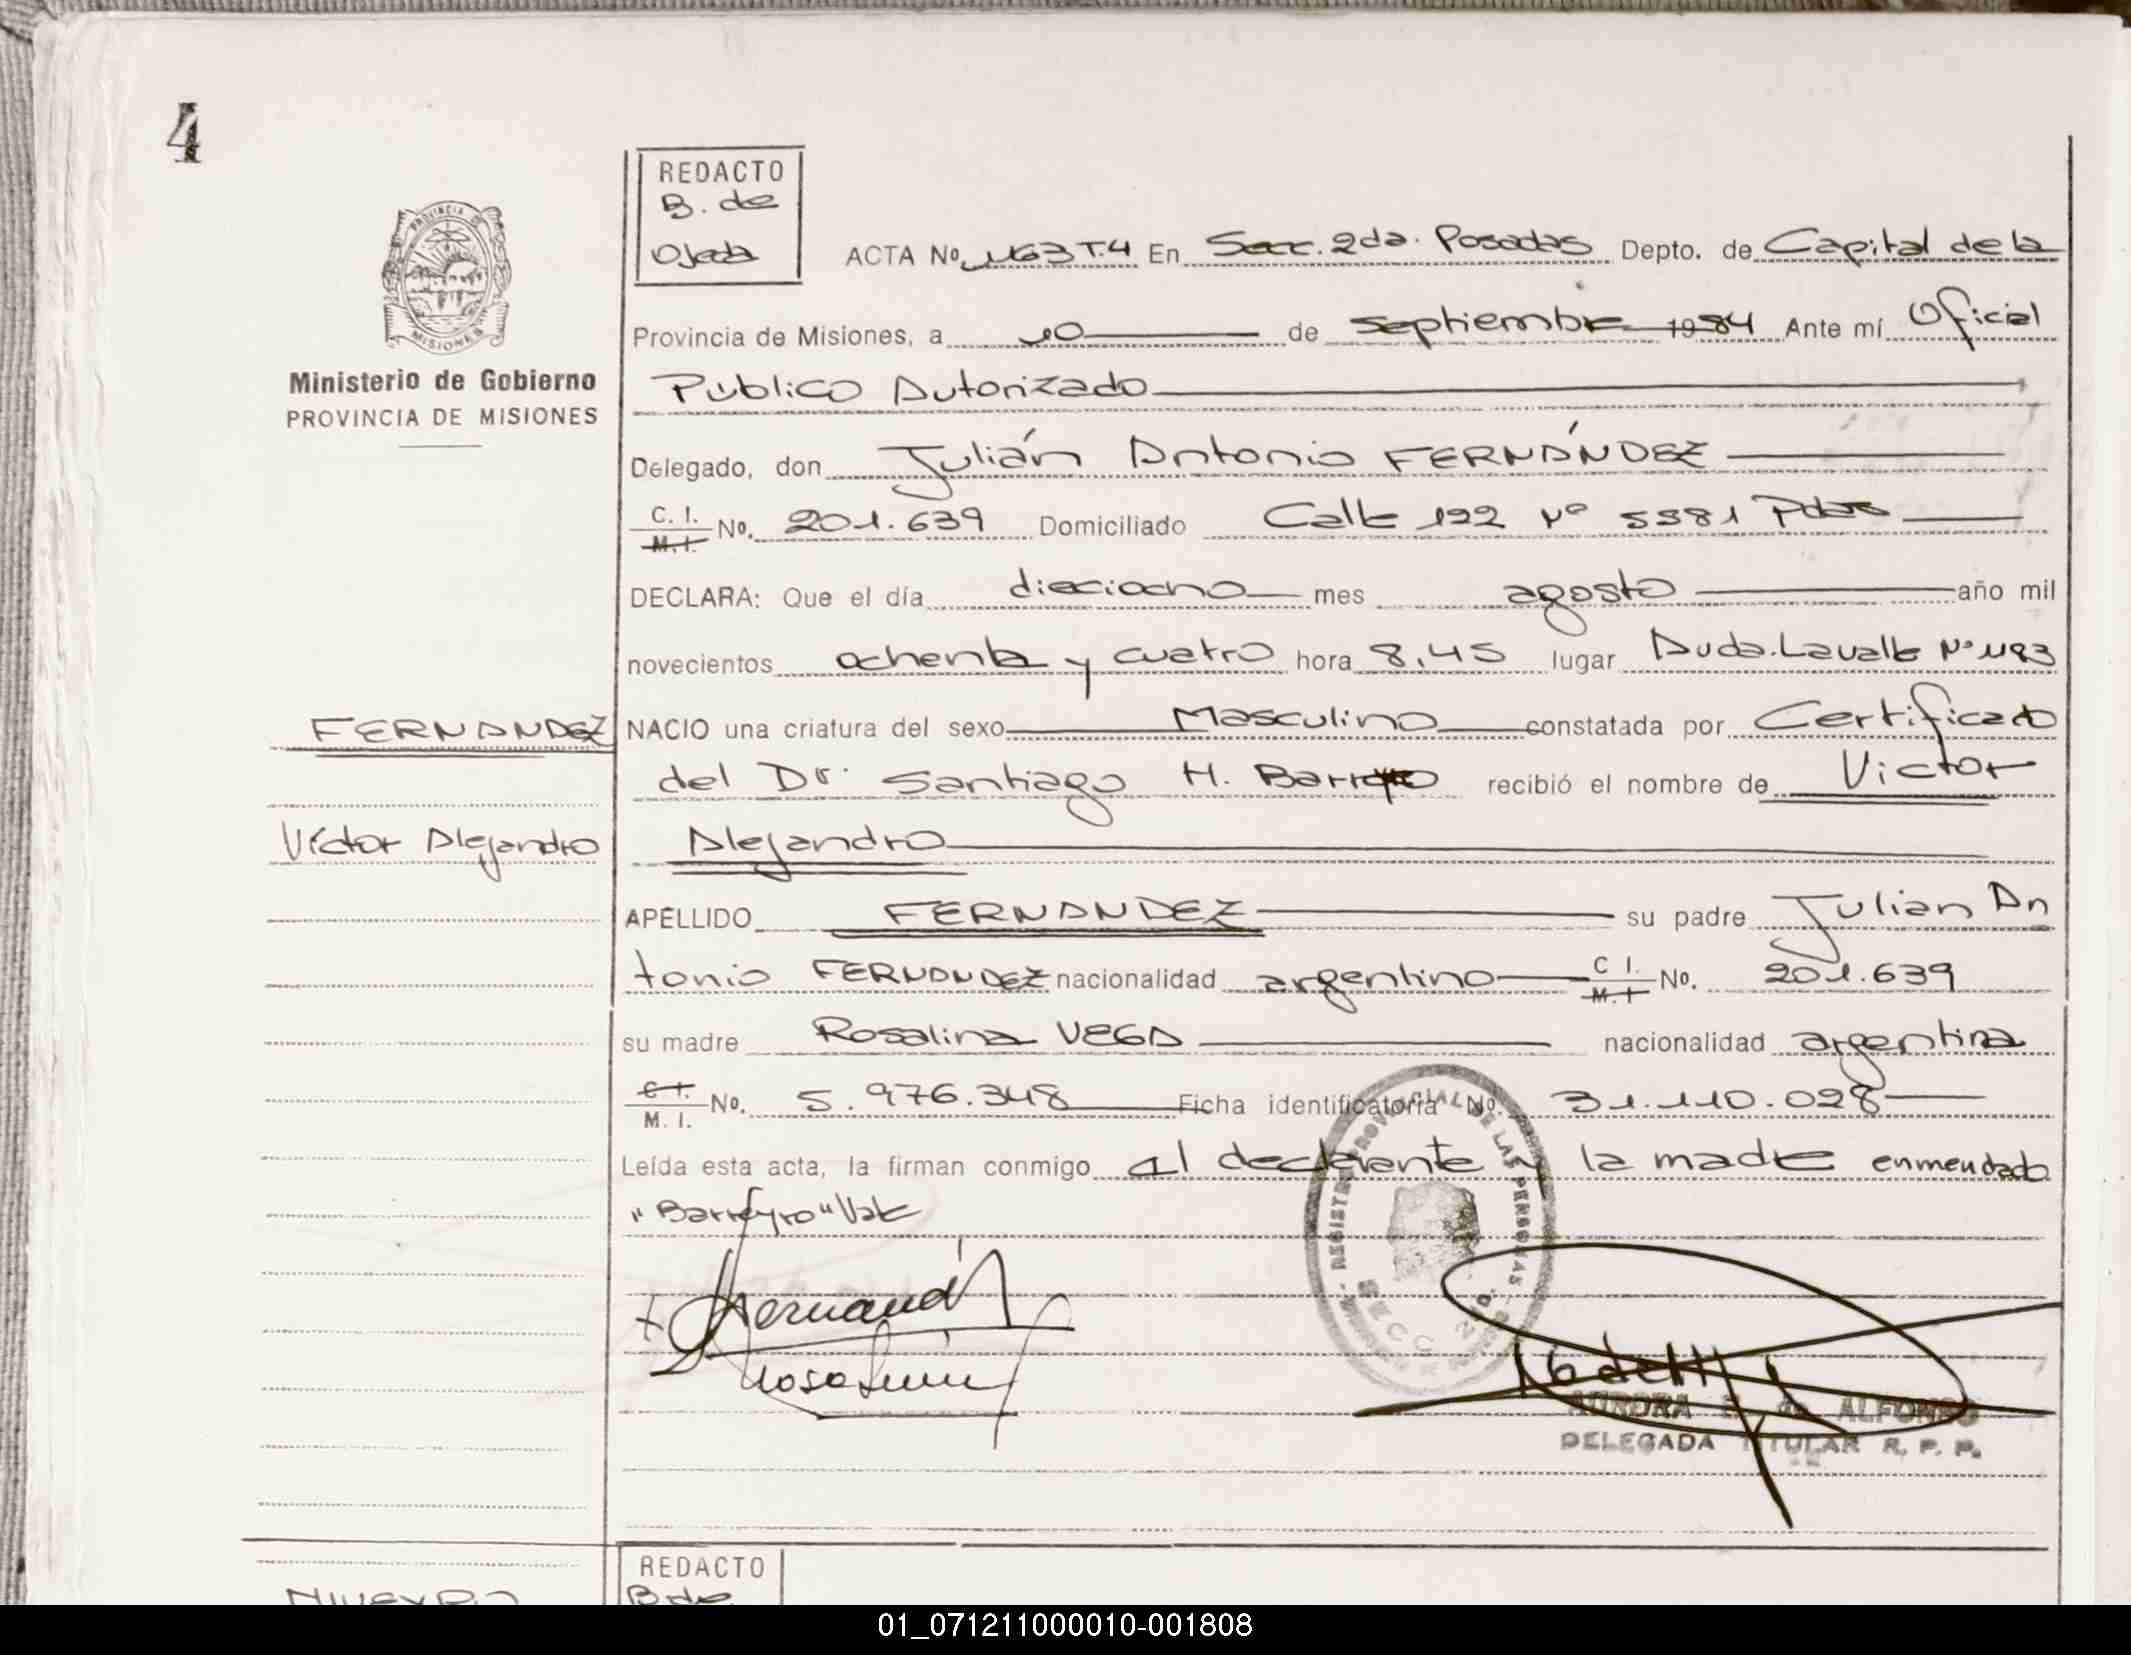 4
REDACTO
B. de
Ojeda
ACTA No. 1163 T.4 En Secc. 2da. Posadas Depto. de Capital de la
Provincia de Misiones, a 10 de septiembre 1984 Ante mí Oficial
Ministerio de Gobierno
PROVINCIA DE MISIONES
Público Autorizado
Delegado, don Julián Antonio FERNÁNDEZ
C. I. M. I. No. 201.639 Domiciliado Calle 122 Nº 5581 Pdas
DECLARA: Que el día dieciocho mes agosto año mil
novecientos ochenta y cuatro hora 8,45 lugar Avda. Lavalle Nº 1193
FERNANDEZ
NACIO una criatura del sexo Masculino constatada por Certificado
del Dr. Santiago H. Barreyro recibió el nombre de Victor
Víctor Alejandro
Alejandro
APELLIDO FERNANDEZ su padre Julian An
tonio FERNANDEZ nacionalidad argentino C I. M. I No. 201.639
su madre Rosalina VEGA nacionalidad argentina
C I. M. I. No. 5.976.348 Ficha identificatoria No. 31.110.028
Leída esta acta, la firman conmigo el declarante y la madre enmendado
"Barreyro" Vale
REGISTRO PROVINCIAL DE LAS PERSONAS
SECC
AURORA ALFONSO
DELEGADA TITULAR R. P. P.
REDACTO
B. de
01_071211000010-001808